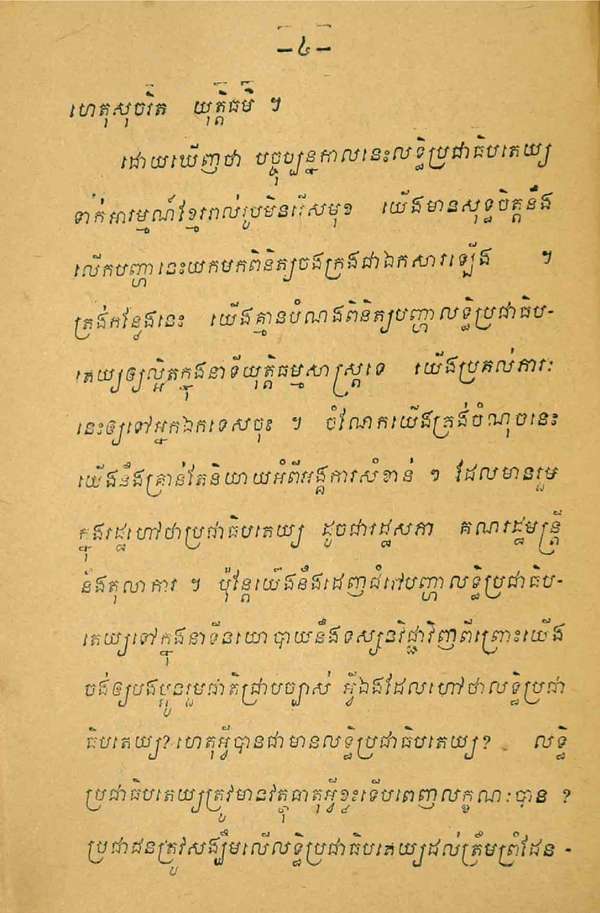 –៤–
ហេតុសុចរិត យុត្តិធម៌ ។
ដោយឃើញថា បច្ចុប្បន្នកាលនេះលទ្ធិប្រជាធិបតេយ្យ
ទាក់អារម្មណ៍ខ្មែររាល់រូបមិនរើសមុខ យើងមានសុទ្ធចិត្តនឹង
លើកបញ្ហានេះយកមកពិនិត្យចងក្រងជាឯកសារឡើង ។
ត្រង់កន្លែងនេះ យើងគ្មានបំណងពិនិត្យបញ្ហាលទ្ធិប្រជាធិប-
តេយ្យឲ្យល្អិតក្នុងនាទីយុត្តិធម្មសាស្ត្រទេ យើងប្រគល់ភារៈ
នេះឲ្យទៅអ្នកឯកទេសចុះ ។ ចំណែកយើងត្រង់ចំណុចនេះ
យើងនឹងគ្រាន់តែនិយាយអំពីអង្គការសំខាន់ ៗ ដែលមានរួម
ក្នុងរដ្ឋហៅថាប្រជាធិបតេយ្យ ដូចជារដ្ឋសភា គណរដ្ឋមន្ត្រី
និងតុលាការ ។ ប៉ុន្តែយើងនឹងដេញជំរៅបញ្ហាលទ្ធិប្រជាធិប-
តេយ្យទៅក្នុងនាទីនយោបាយនឹងទស្សនវិជ្ជាវិញពីព្រោះយើង
ចង់ឲ្យបងប្អូនរួមជាតិជ្រាបច្បាស់ អ្វីឯងដែលហៅថាលទ្ធិប្រជា
ធិបតេយ្យ? ហេតុអ្វីបានជាមានលទ្ធិប្រជាធិបតេយ្យ? លទ្ធិ
ប្រជាធិបតេយ្យត្រូវមានវត្ថុធាតុអ្វីខ្លះទើបពេញលក្ខណៈបាន ?
ប្រជាជនត្រូវសង្ឃឹមលើលទ្ធិប្រជាធិបតេយ្យដល់ត្រឹមព្រំដែន-